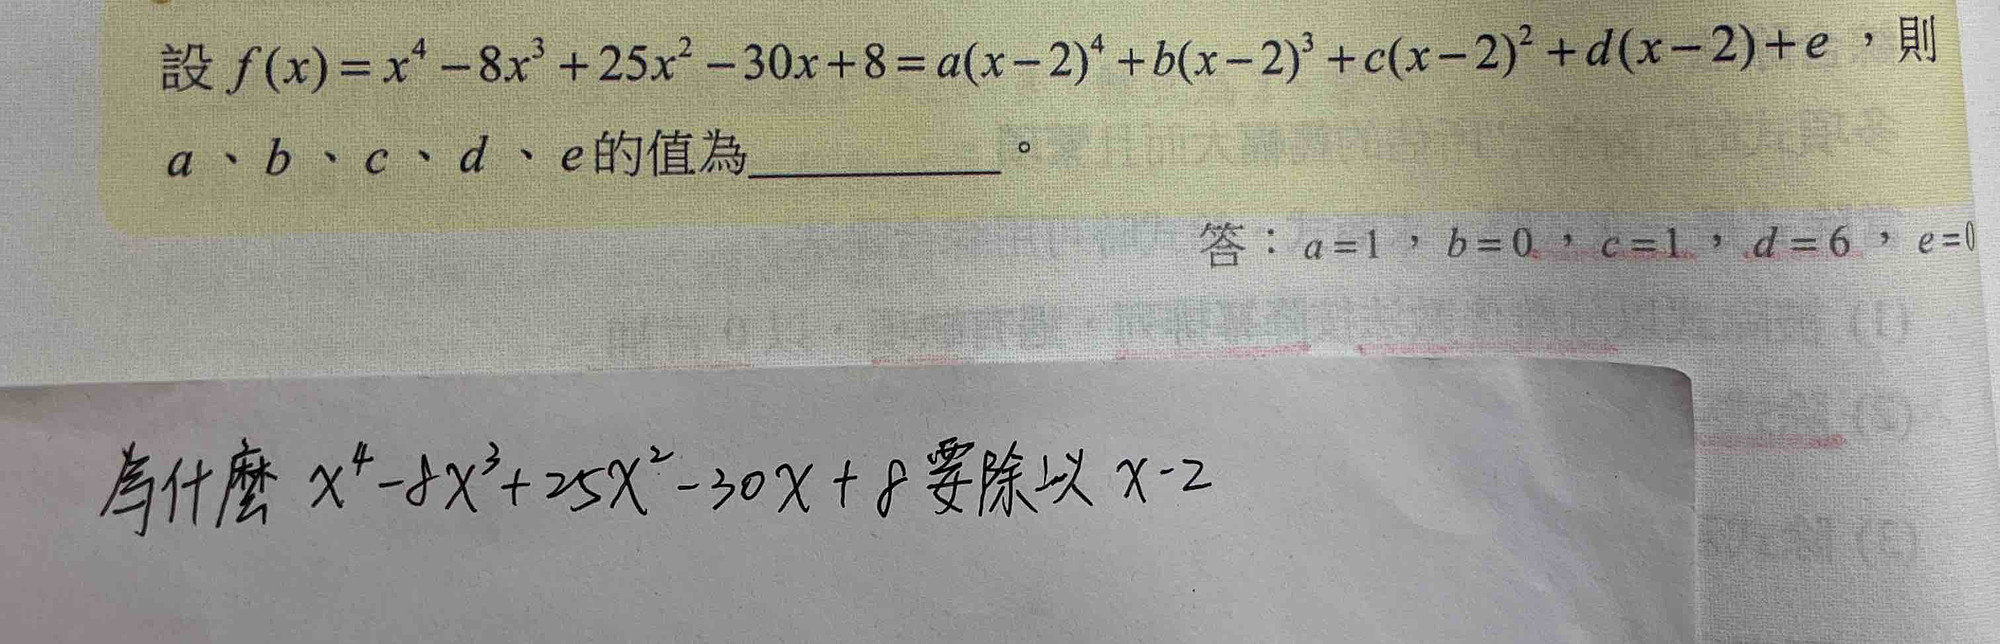 設 f(x)=x⁴−8x³+25x²−30x+8=a(x−2)⁴+b(x−2)³+c(x−2)²+d(x−2)+e，則
a、b、c、d、e的值為__________。
答：a=1，b=0，c=1，d=6，e=0
為什麼 x⁴-8x³+25x²-30x+8要除以 x-2